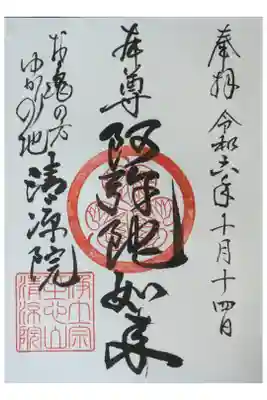 奉拝 令和六年十月十四日
本尊 阿弥陀如来
お亀の方
ゆかりの地
清涼院
浄土宗
清涼院